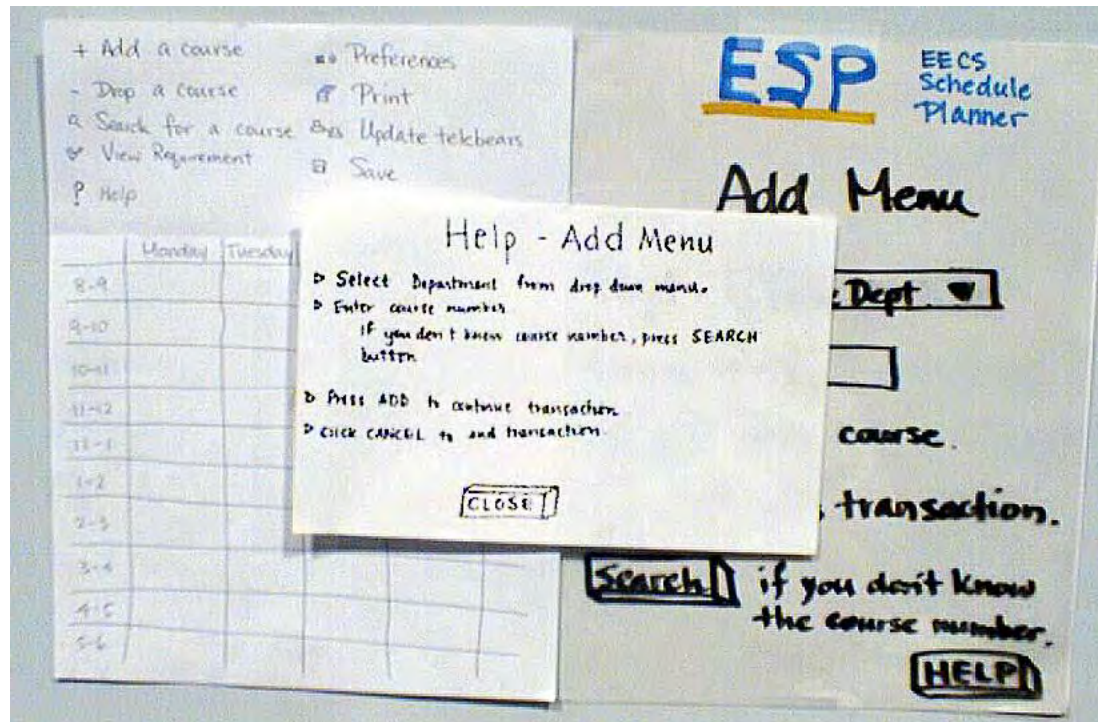 + Add a course
- Drop a course
Search for a course
View Requirement
? Help
Preferences
Print
Update telebears
Save
Monday Tuesday
8-9
9-10
10-11
11-12
12-1
1-2
2-3
3-4
4-5
5-6
Help - Add Menu
Select Department from drop down menu.
Enter course number
if you don't know course number, press SEARCH
button
Press ADD to continue transaction.
Click CANCEL to end transaction.
CLOSE
ESP
EECS
Schedule
Planner
Add Menu
Dept.
course.
transaction.
Search if you don't know
the course number.
HELP